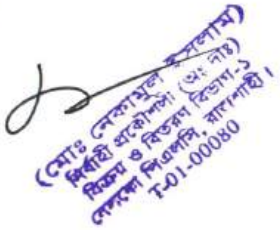 (মোঃ নেকামুল ইসলাম)
নির্বাহী প্রকৌশলী (অঃ দাঃ)
বিক্রয় ও বিতরণ বিভাগ-১
নেসকো পিএলসি, রাজশাহী।
T-01-00080